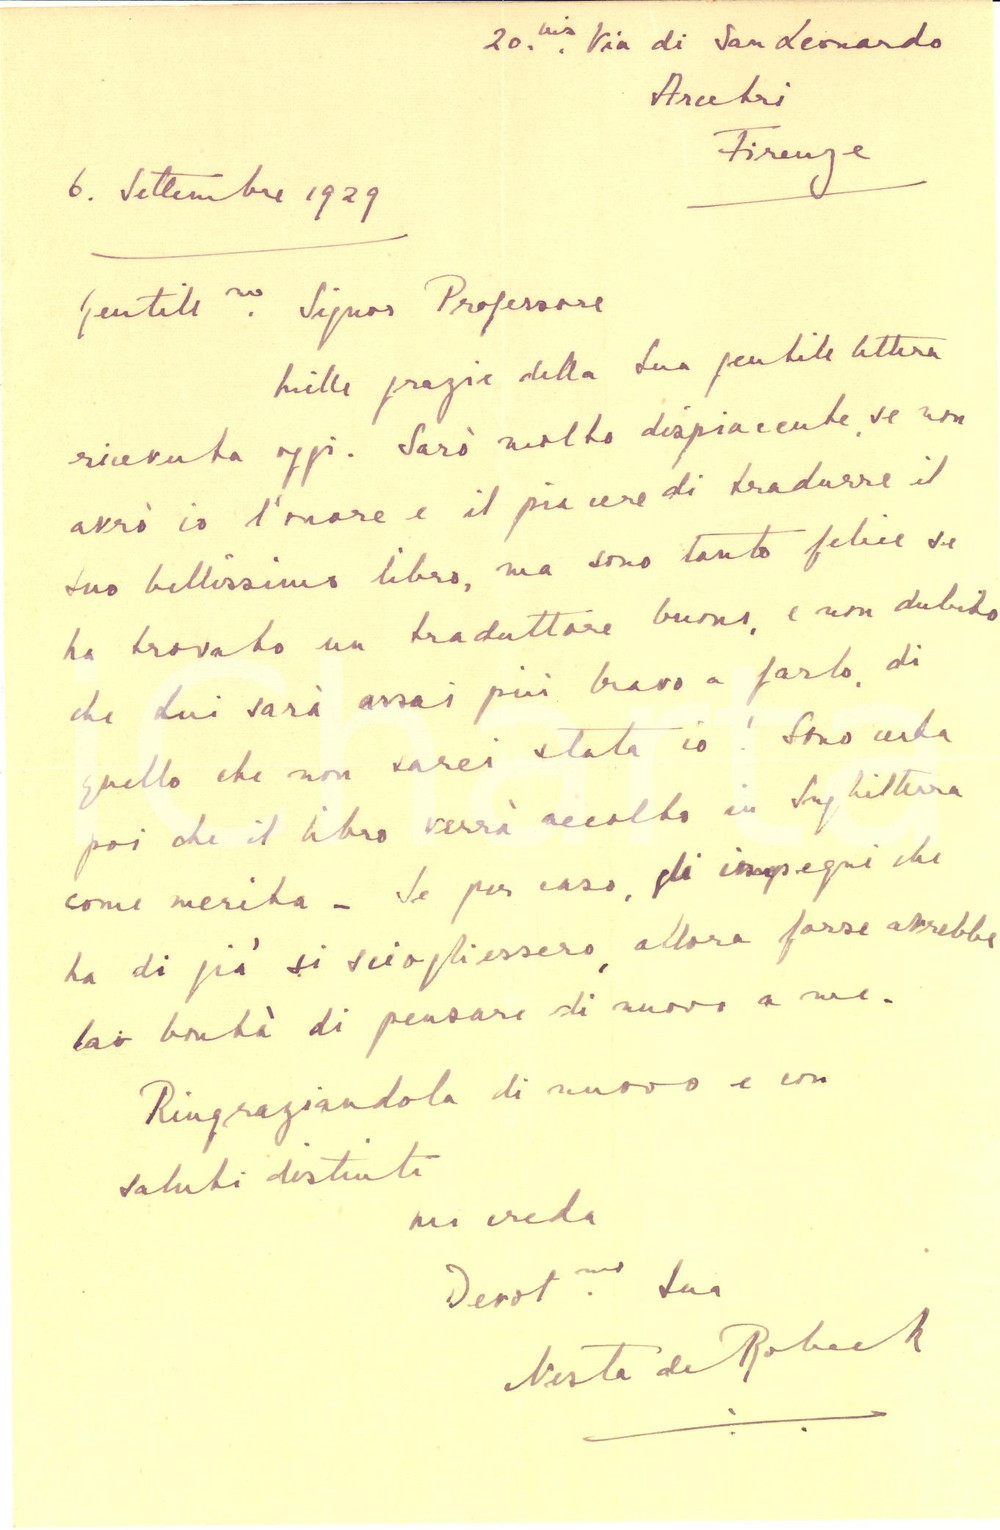 20.bis. Via di San Leonardo
Arcetri
Firenze
6. Settembre 1929
Gentill mo. Signor Professore
Mille grazie della Sua gentile lettera
ricevuta oggi. Sarò molto dispiacente, se non
avrò io l'onore e il piacere di tradurre il
Suo bellissimo libro, ma sono tanto felice se
ha trovato un traduttore buono, e non dubito
che Lui sarà assai più bravo a farlo, di
quello che non sarei stata io! Sono certa
poi che il libro verrà accolto in Inghilterra
come merita - Se per caso, gli impegni che
ha di già si sciogliessero, allora forse avrebbe
la bontà di pensare di nuovo a me.
Ringraziandola di nuovo e con
saluti distinti
mi creda
Devot mo. Sua
Nesta de Robeck